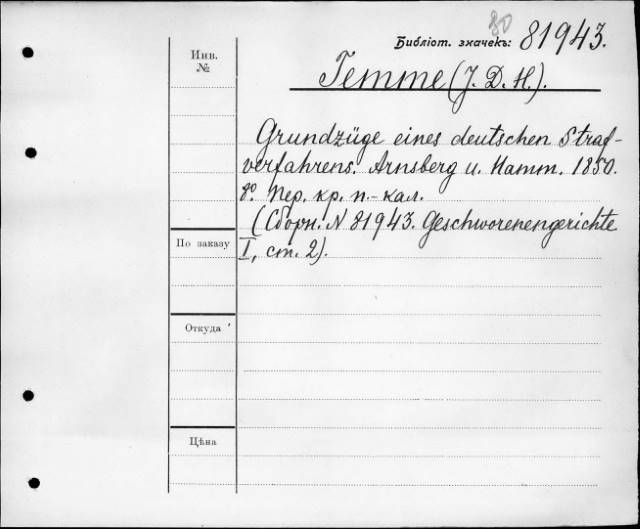 80
Библіот. значекъ: 81943.
Инв.
№
Temme (J. D. H.).
Grundzüge eines deutschen Straf-
verfahrens. Arnsberg u. Hamm. 1850.
8º. Пер. кр. п.-кал.
(Сборн. N 81943. Geschworenengerichte
По заказу
I, ст. 2).
Откуда
Цѣна